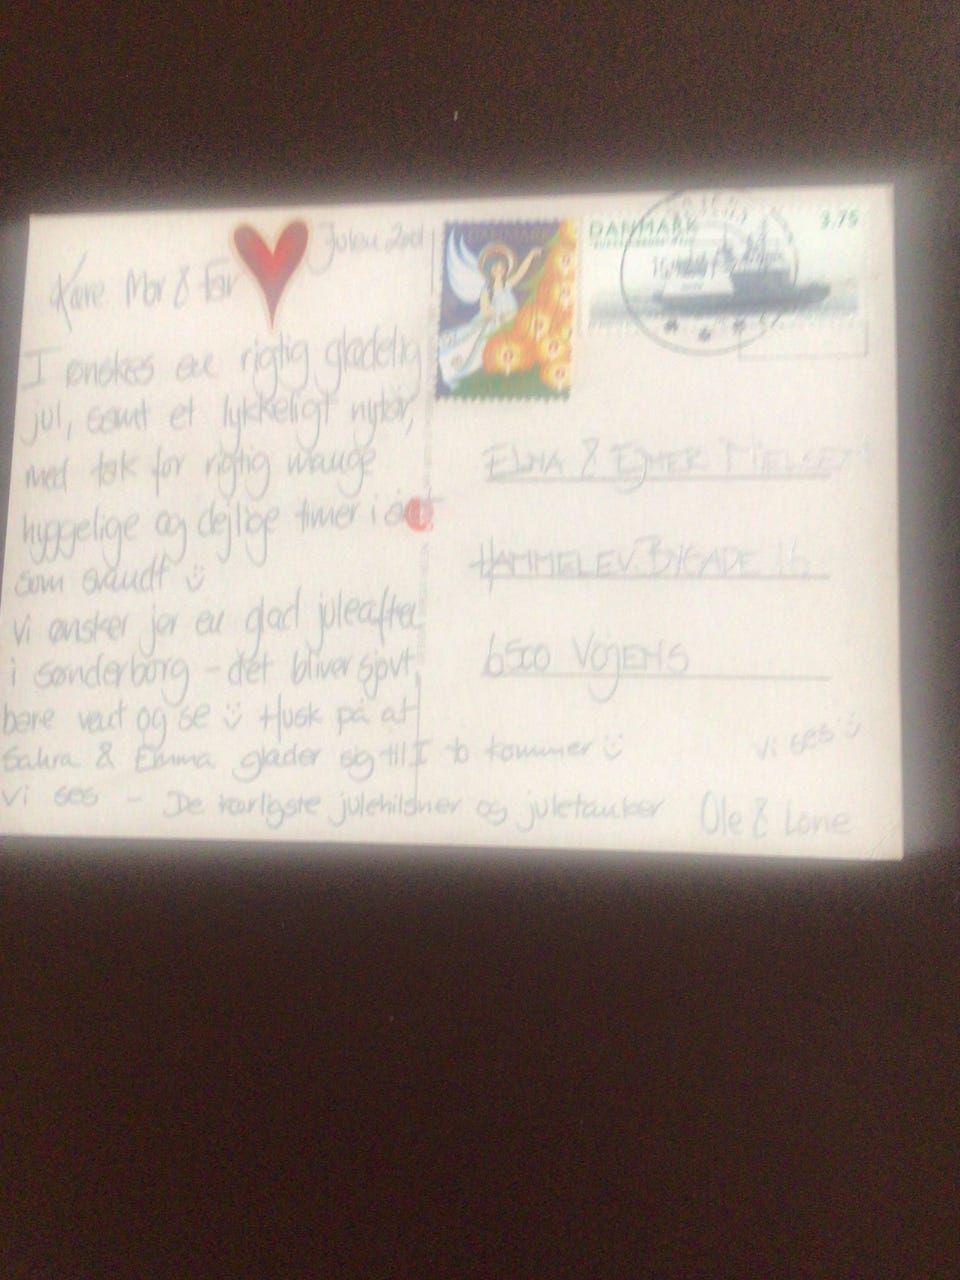 Julen 2001
Kære Mor & Far
I ønskes en rigtig glædelig
jul, samt et lykkeligt nytår,
med tak for rigtig mange
hyggelige og dejlige timer i året
som svandt ü
Vi ønsker jer en glad juleaften
i Sønderborg - det bliver sjovt,
bare vent og se ü Husk på at
& Emma glæder sig til I to kommer ü
Vi ses - De kærligste julehilsner og juletanker
Ole & Lone
Vi ses ü
DANMARK 3.75
ELNA & EJNER NIELSEN
HAMMELEV BYGADE 16
6500 VOJENS